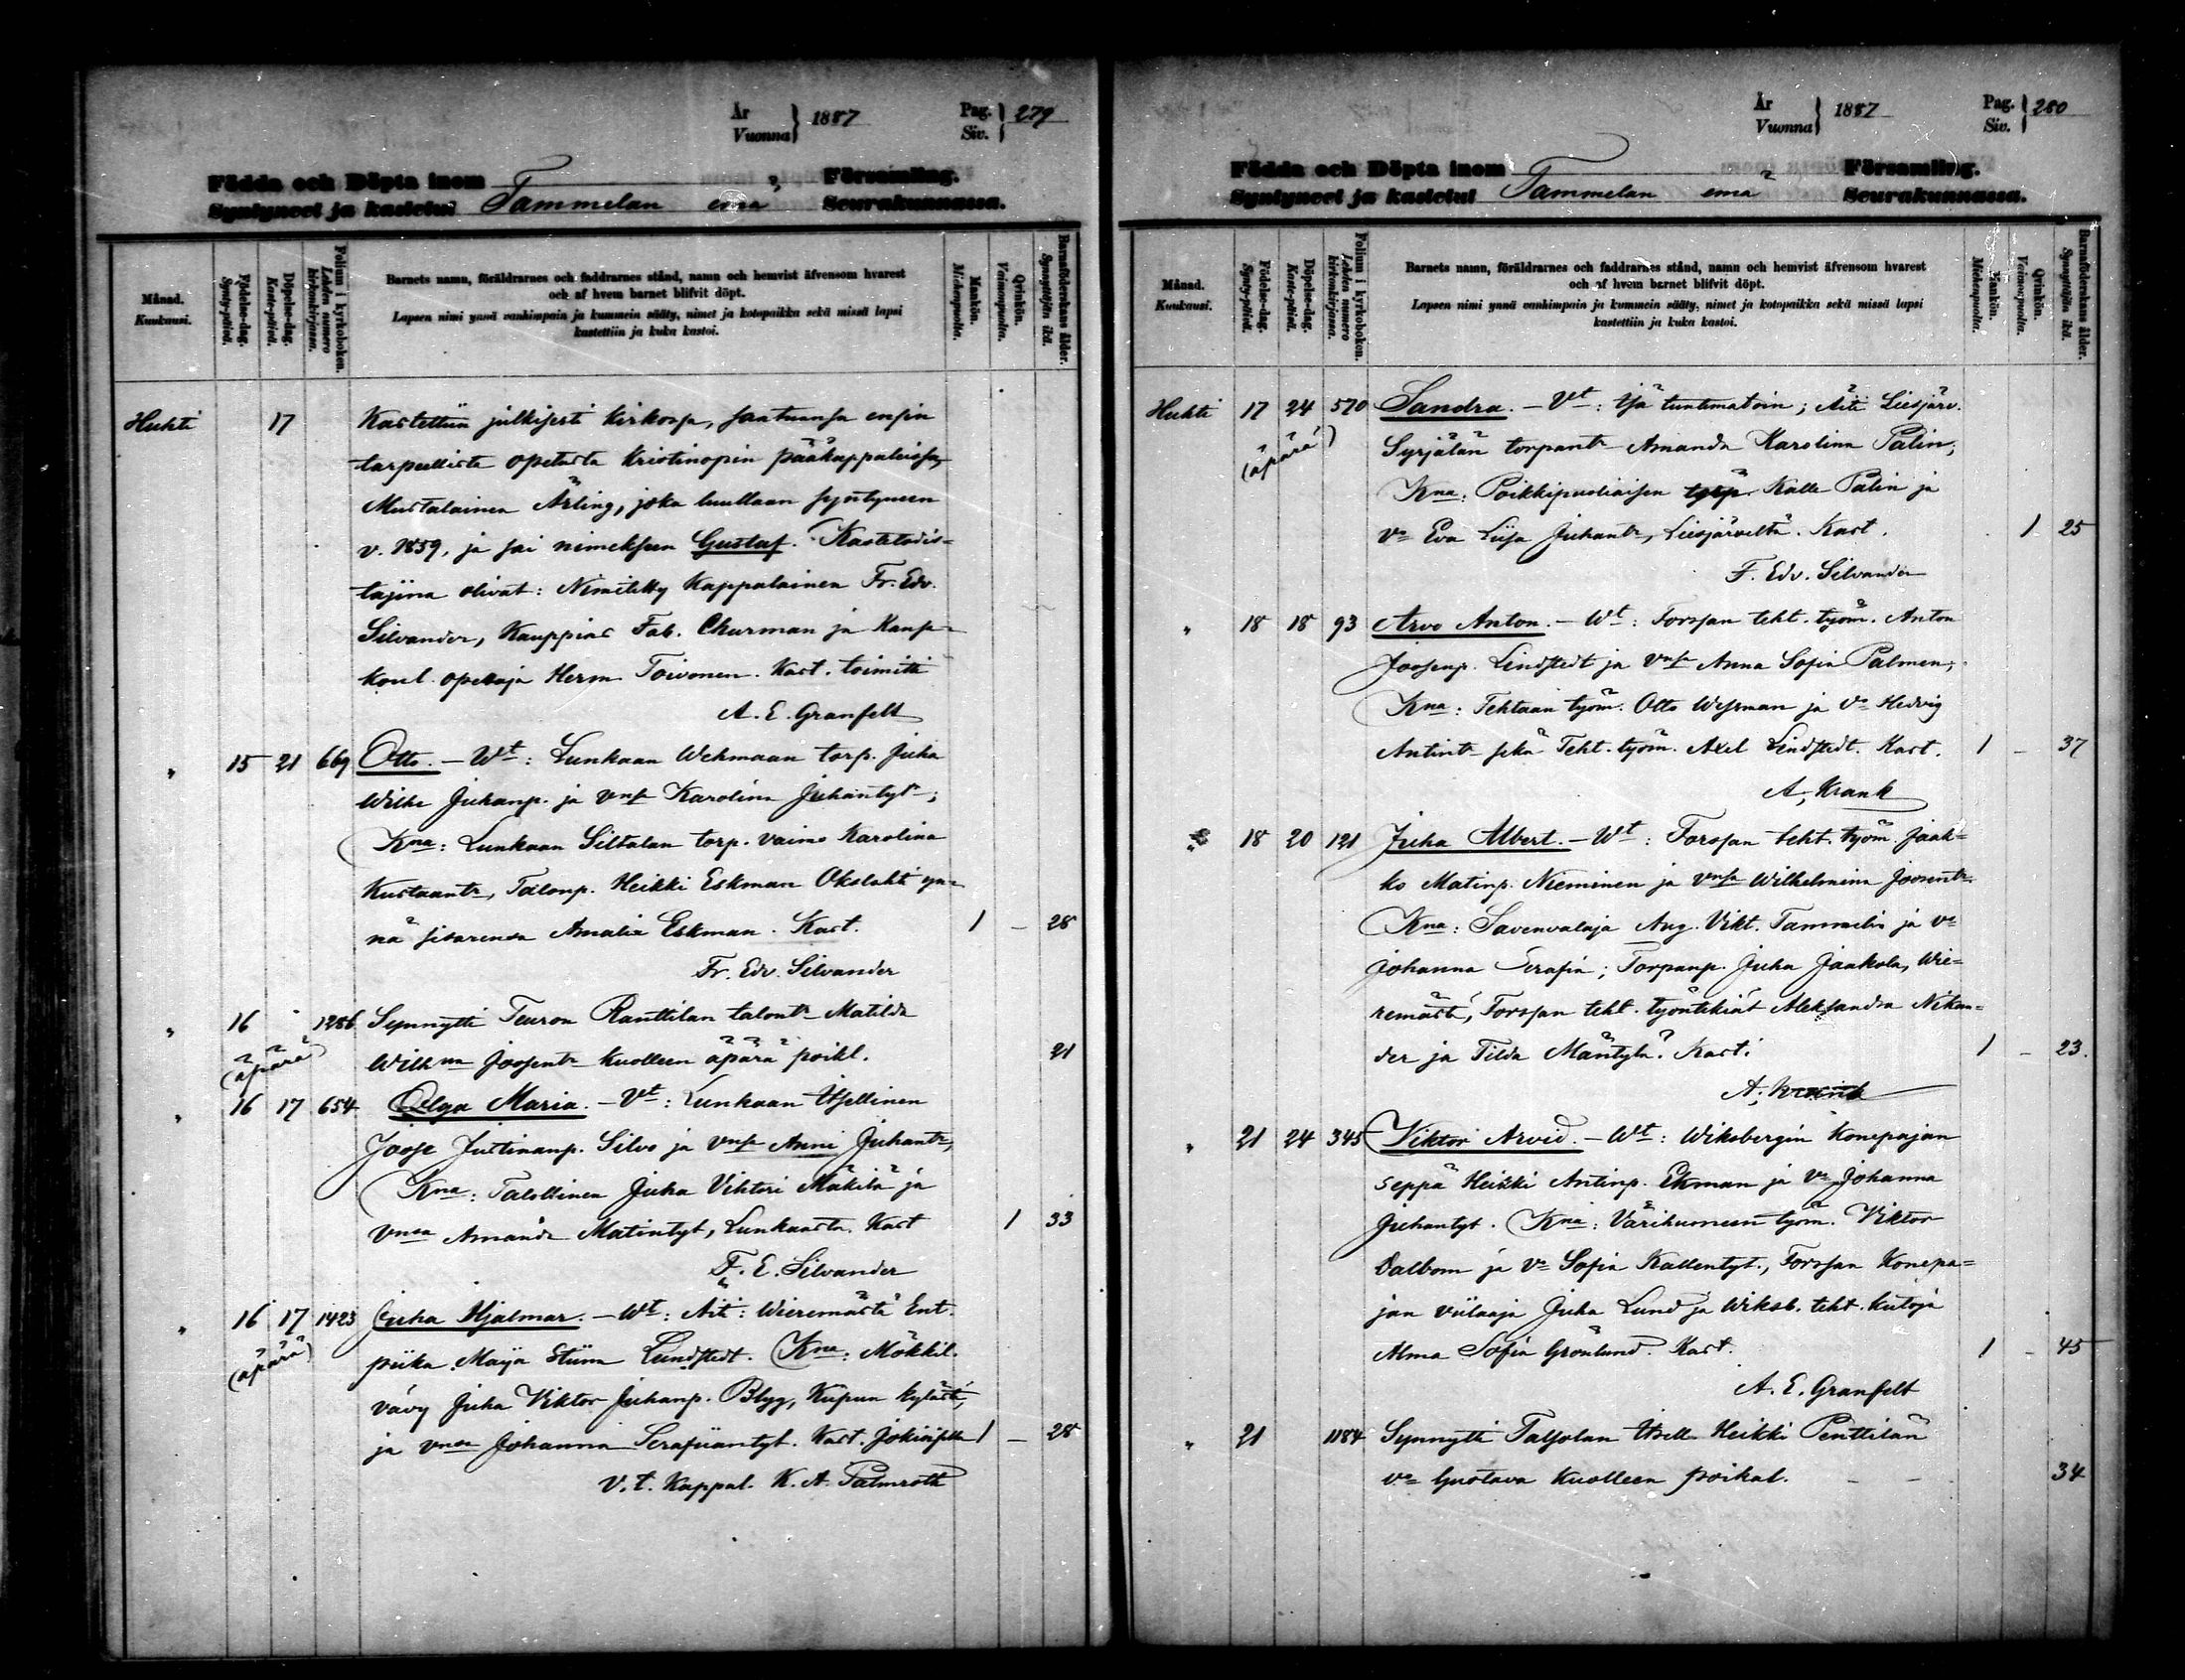 År
Vuonna } 1887
Pag.
Siv. } 279
Födda och Döpta inom Församling.
Syntyneet ja kastetut Tammelan emä Seurakunnassa.
Månad.
Kuukausi.
Födelse-dag.
Synty-päivä.
Döpelse-dag.
Kaste-päivä.
Folium i kyrkoboken.
Lehden numero kirkonkirjassa.
Barnets namn, föräldrarnes och faddrarnes stånd, namn och hemvist äfvensom hvarest
och af hvem barnet blifvit döpt.
Lapsen nimi ynnä vanhimpain ja kummein sääty, nimet ja kotopaikka sekä missä lapsi
kastettiin ja kuka kastoi.
Mankön.
Miehenpuolta.
Qvinkön.
Vaimonpuolta.
Barnaföderskans ålder.
Synnyttäjän ikä.
Huhti 17 Kastettiin julkisesti kirkossa, saatuansa ensin
tarpeellista opetusta Kristinopin pääkappaleissa,
Mustalainen Ärling, joka luullaan syntyneen
v. 1859, ja sai nimeksen Gustaf. Kastetodis=
tajina olivat: Nimitetty Kappalainen Fr. Edv.
Silvander, Kauppias Fab. Churman ja Kansa-
koul. opettaja Herm. Toivonen. Kast. toimitti
A. E. Granfelt
" 15 21 669 Otto. - Wt: Lunkaan Wehmaan torp. Juha
Wilhe Juhanp. ja vnsa Karolina Juhantyt;
Kna: Lunkaan Siltalan torp. vaimo Karolina
Kustaantr, Talonp. Heikki Eskman Okslahti yn-
nä sisarensa Amalia Eskman. Kast. 1 - 28
Fr. Edv. Silvander
" 16 1286 Synnytti Teuron Ranttilan talontr Matilda
(äpärä) Wilhna Joosentr kuolleen äpärä poikl. 21
" 16 17 654 Olga Maria. - Vt: Lunkaan Itsellinen
Joose Justinanp. Silvo ja vnsa Anni Juhantr,
Kna: Talollinen Juha Vihtori Mäkilä ja
vnsa Amanda Matintyt, Lunkaasta. Kast 1 33
F. E. Silvander
" 16 17 1423 Juha Hjalmar. - Wt: Äiti: Wieremästä Ent.
(äpärä) piika Maija Stiina Lundstedt. Kna: Mökkil.
vävy Juha Viktor Juhanp. Blyg, Kuipun kylästä,
ja vnsa Johanna Serafiiantyt. Kast. Jokioisilla 1 - 28
V. t. Kappal. K. A. Palmroth
År
Vuonna } 1887
Pag.
Siv. } 280
Födda och Döpta inom Församling.
Syntyneet ja kastetut Tammelan emä Seurakunnassa.
Månad.
Kuukausi.
Födelse-dag.
Synty-päivä.
Döpelse-dag.
Kaste-päivä.
Folium i kyrkoboken.
Lehden numero kirkonkirjassa.
Barnets namn, föräldrarnes och faddrarnes stånd, namn och hemvist äfvensom hvarest
och af hvem barnet blifvit döpt.
Lapsen nimi ynnä vanhimpain ja kummein sääty, nimet ja kotopaikka sekä missä lapsi
kastettiin ja kuka kastoi.
Mankön.
Miehenpuolta.
Qvinkön.
Vaimonpuolta.
Barnaföderskans ålder.
Synnyttäjän ikä.
Huhti 17 24 570 Sandra. - Vt: Isä tuntematoin; Äiti Liesjärv.
(äpärä) Syrjälän torpantr Amanda Karolina Palin;
Kna: Poikkipuoliaisen Kalle Palin ja
va Eva Liisa Juhantr, Liesjärveltä. Kast. 1 25
F. Edv. Silvander
" 18 18 93 Arvo Anton. - Wt: Forssan teht. työm. Anton
Joosenp. Lindstedt ja vnsa Anna Sofia Palmen;
Kna: Tehtaan työm. Otto Wessman ja va Hedvig
Antintr sekä Teht. työm. Axel Lindstedt. Kast. 1 - 37
A. Krank
18 20 121 Juha Albert. - Wt: Forssan teht. työm. Jaak=
ko Matinp. Nieminen ja vnsa Wilhelmina Joosentr.
Kna: Savenvalaja Aug. Vikt. Tammelin ja va
Johanna Serafia; Torpanp. Juha Jaakola, Wie=
remästä, Forssan teht. työntekiät Aleksandra Nikan=
der ja Tilda Mäntylä. Kast: 1 - 23.
A. Krank
" 21 24 345 Viktor Arvid. - Wt: Wiksbergin Konepajan
seppä Heikki Antinp. Ekman ja va Johanna
Juhantyt. Kna: Värihuoneen työm. Viktor
Dalbom ja va Sofia Kallentyt., Forssan Konepa=
jan viilaaja Juha Lund ja Wiksb. teht. kutoja
Alma Sofia Grönlund. Kast. 1 - 45
A. E. Granfelt
" 21 1184 Synnytti Talsolan Itsell Heikki Penttilän
va Gustava kuolleen poikal. - - 34